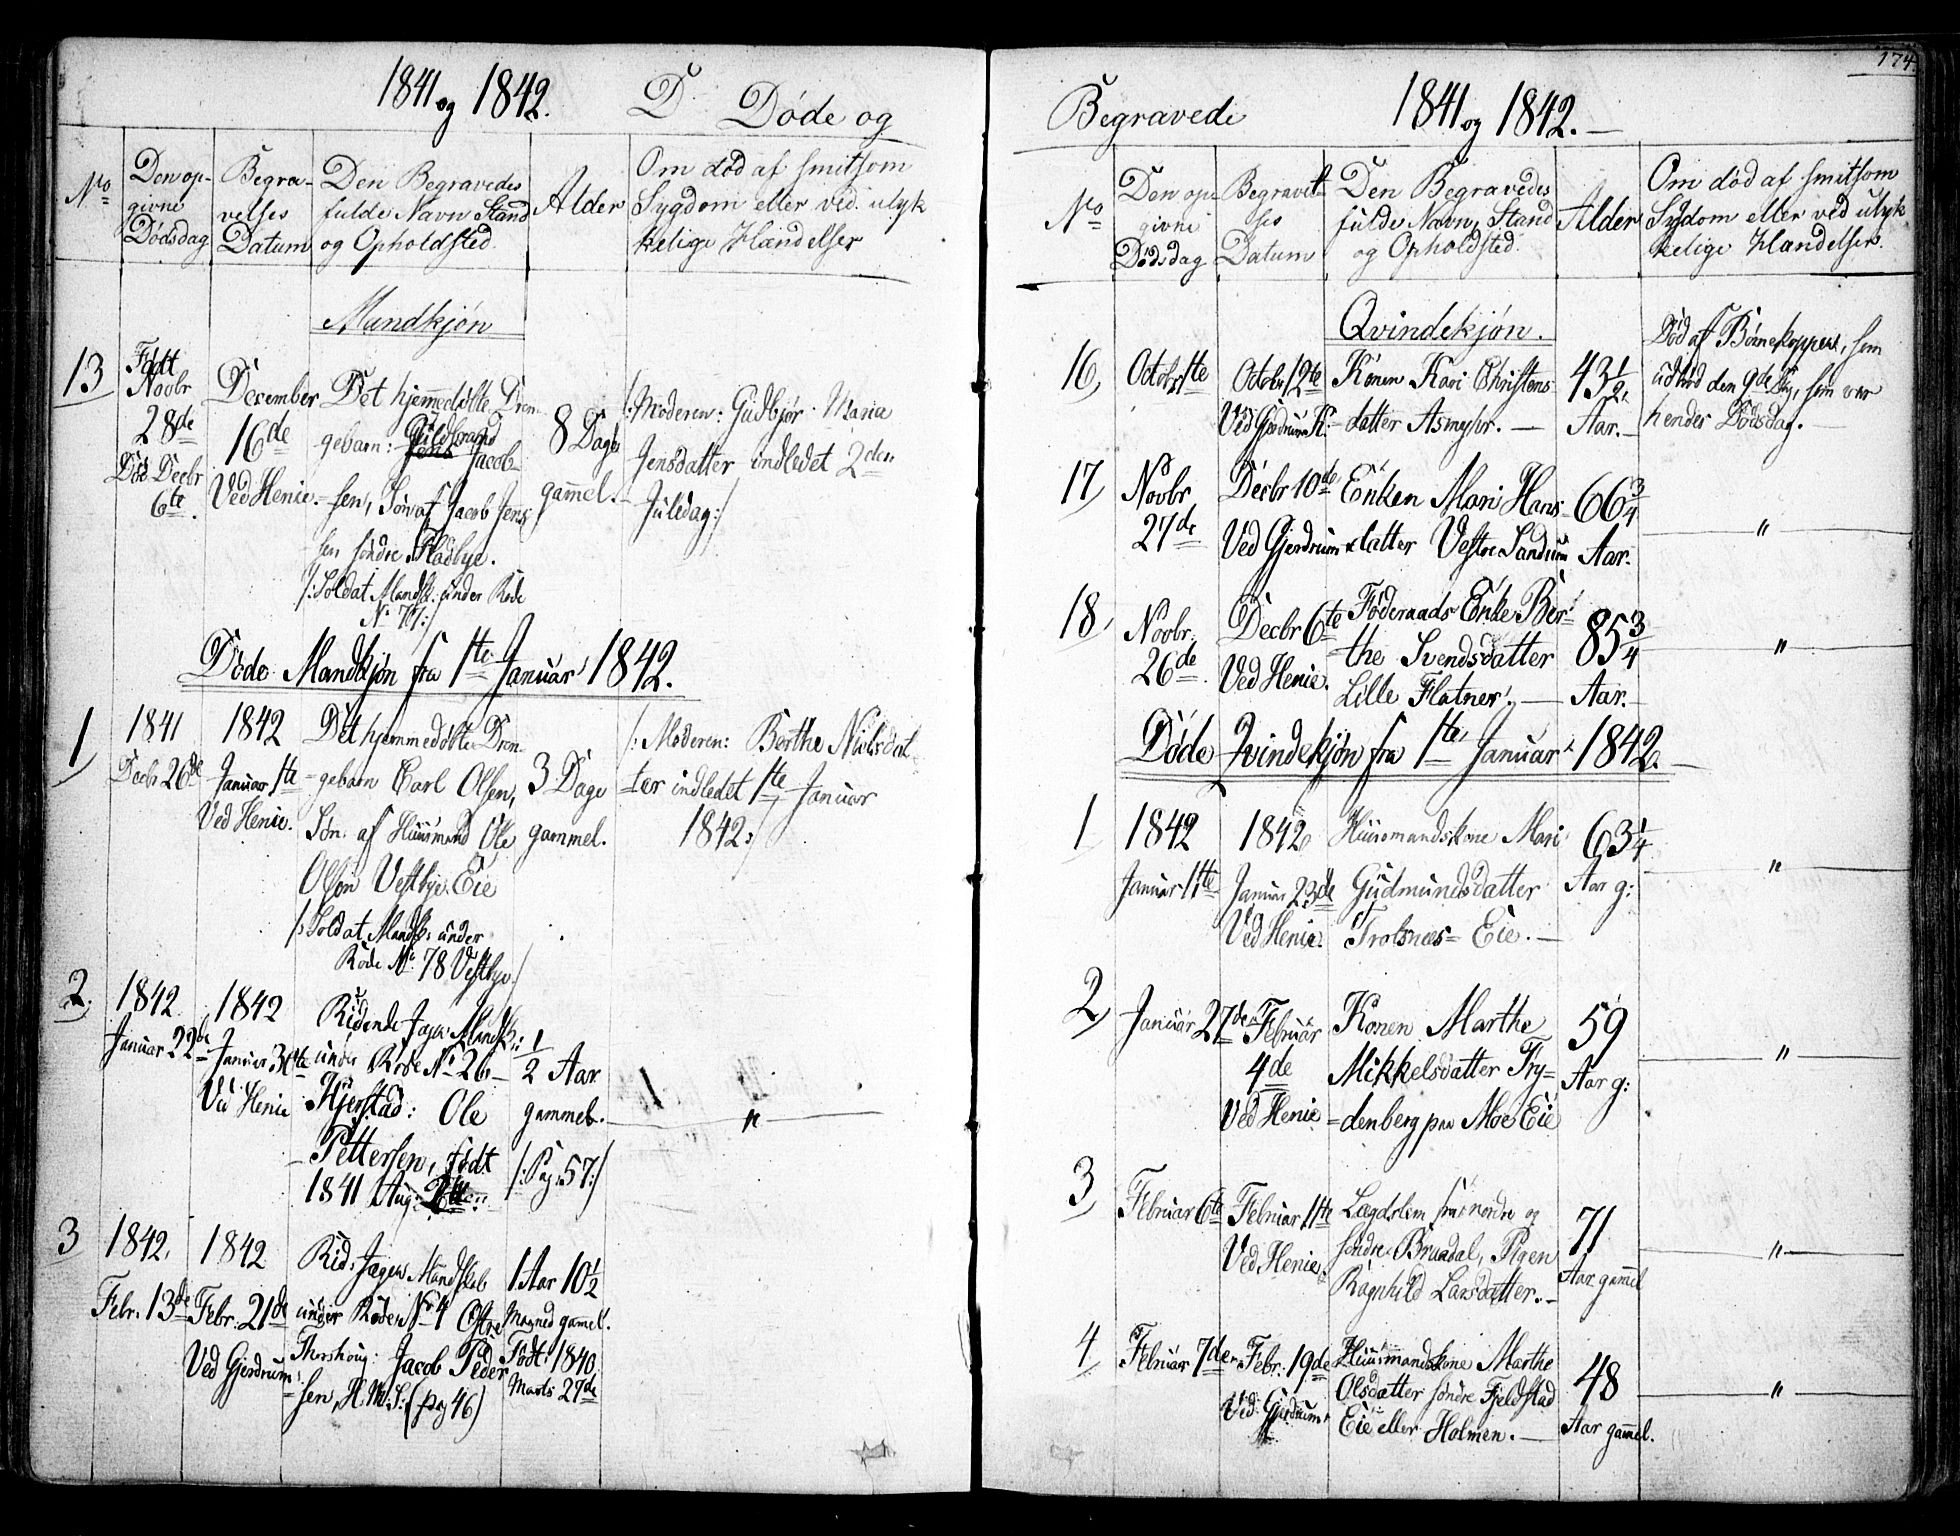 1841 og 1842. D. Døde og
No
Den op-
givne
Dødsdag
Begra-
velses
Datum
Den Begravedes
fulde Navn Stand
og Opholdsted.
Alder
Om død af smitsom
Sygdom eller ved ulyk
kelige Hændelser
Mandkjøn
13
Født
Novbr
28de
Død Decbr
6te
December
16de
Ved Henie.
Det hjemmedøbte Dren-
gebarn: Guldbrand
Jacob-
sen, Søn af Jacob Jens
sen søndre Fladbye.
/: Soldat Mandsk: under Rode
No 77:/
8 Dage
gamel.
/: Moderen: Gudbjør Maria
Jensdatter indledet 2den
Juledag:/
Døde Mandkjøn fra 1te Januar 1842.
1
1841
Decbr 26de
1842
Januar 1te
Ved Henie.
Det hjemmedøbte Dren
gebarn Carl Olsen,
Søn af Huusmand Ole
Olsen Vestbye Eie
/: Soldat Mandsk: under
Rode No 78 Vestbye:/
3 Dage
gammel.
/: Moderen: Berthe Nielsdat
ter indledet 1te Januar
1842:/
2
1842
Januar 22de
1842
Januar 30te
Ved Henie
Ridende Jæger Mandsk:
under Rode No 26
Kjerstad: Ole
Pettersen, født
1841 Aug:
1/2 Aar
gammel.
/: Pag: 57:/
"
3
1842.
Febr. 13de
1842
Febr: 21de
Ved Gjerdrum
Rid: Jæger Mandskab
under Roden No 4 Østre
Thorshoug: Jacob Peder
sen, H. M. S: (pag 46)
1 Aar 10 1/2
Maaned gamel.
Født: 1840
Marts 27de
174.
Begravede 1841 og 1842.
No
Den op-
givne
Dødsdag
Begravel-
ses
Datum
Den Begravedes
fulde Navn, Stand
og Opholdsted.
Alder
Om død af smitsom
Sydom eller ved ulyk
kelige Hændelser.
Qvindekjøn.
16,
Octobr 1te
Octobr 12te
Ved Gjerdrum K:
Konen Kari Christens
datter Asmyhr.
43 1/2
Aar.
Død af Børnekopper, som
udbrød den 9de Dag, som var
hendes Dødsdag.
17,
Novbr
27de
Decbr 10de
Ved Gjerdrum
Enken Mari Hans
datter Vestre Sandrum
66 3/4
Aar.
"
18,
Novbr.
26de
Decbr 6te
Ved Henie.
Føderaads Enke Ber-
the Svendsdatter
Lille Flatner.
85 3/4
Aar.
"
Døde Qvindekjøn fra 1te Januar 1842.
1
1842
Januar 1te
1842
Januar 23de
Ved Henie.
Huusmandskone Mari
Gudmundsdatter
Trotsnæs= Eie.
63 1/4
Aar g:
"
2,
Januar 27de
Februar
4de
Ved Henie
Konen Marthe
Mikkelsdatter Fry=
denberg paa Moe Eie
59
Aar g:
"
3,
Februar 6te
Februar 11te
Ved Henie.
Lægdslem fra nordre og
søndre Braadal, Pigen
Ragnhild Larsdatter.
71
Aar gammel
"
4,
Februar 7de
Febr. 19de
Ved Gjerdrum
Huusmandskone Marthe
Olsdatter søndre Fjeldstad
Eie eller Holmen.
48
Aar gammel.
"